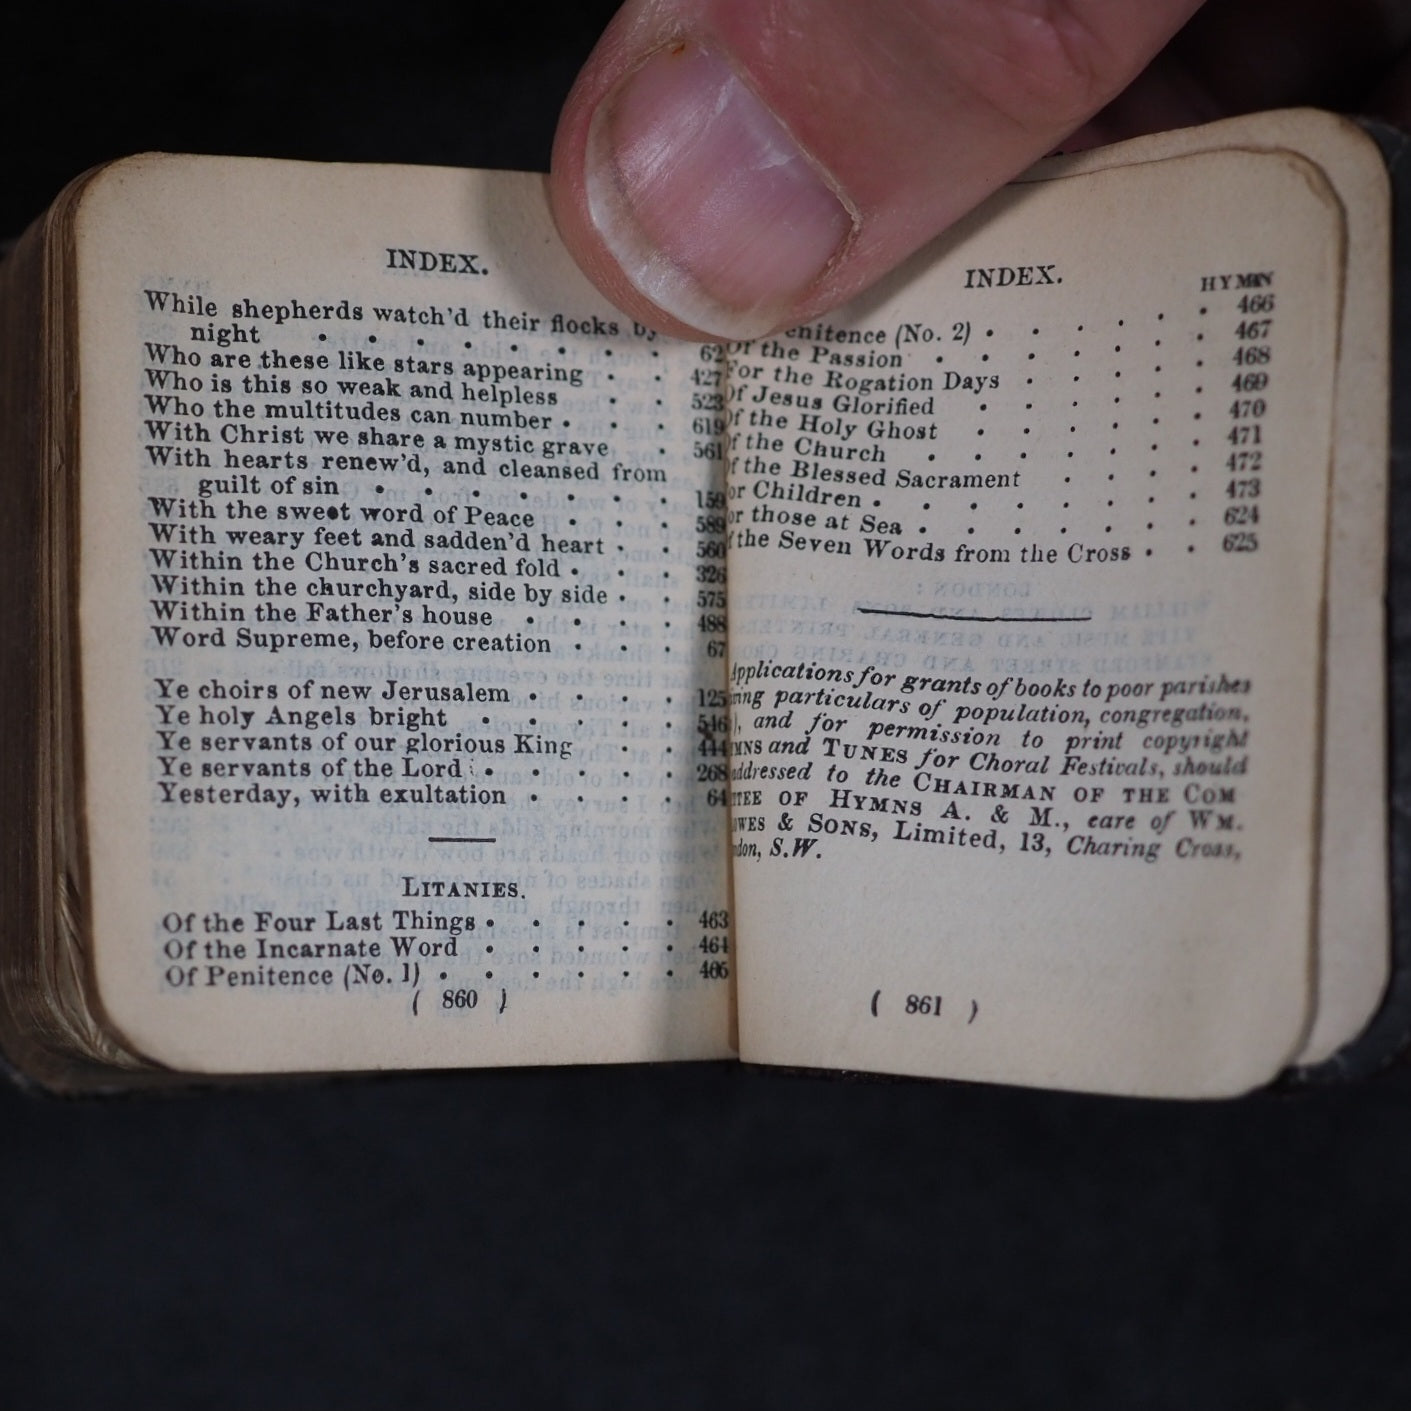 INDEX.
While shepherds watch'd their flocks by
night . . . . . . . . 62
Who are these like stars appearing . . 427
Who is this so weak and helpless . . 523
Who the multitudes can number . . . 619
With Christ we share a mystic grave . 561
With hearts renew'd, and cleansed from
guilt of sin . . . . . . . 159
With the sweet word of Peace . . . 589
With weary feet and sadden'd heart . . 560
Within the Church's sacred fold . . . 326
Within the churchyard, side by side . . 575
Within the Father's house . . . . 488
Word Supreme, before creation . . . 67
Ye choirs of new Jerusalem . . . . 125
Ye holy Angels bright . . . . . 546
Ye servants of our glorious King . . 444
Ye servants of the Lord . . . . . 268
Yesterday, with exultation . . . . 64
LITANIES.
Of the Four Last Things . . . . . 463
Of the Incarnate Word . . . . . 464
Of Penitence (No. 1) . . . . . . 465
( 860 )
INDEX.
HYMN
enitence (No. 2) . . . . . . 466
Of the Passion . . . . . . . 467
For the Rogation Days . . . . . 468
Of Jesus Glorified . . . . . . 469
Of the Holy Ghost . . . . . . 470
f the Church . . . . . . . 471
f the Blessed Sacrament . . . . 472
or Children . . . . . . . . 473
or those at Sea . . . . . . . 624
f the Seven Words from the Cross . . 625
Applications for grants of books to poor parishes
ing particulars of population, congregation,
), and for permission to print copyright
MNS and TUNES for Choral Festivals, should
addressed to the CHAIRMAN OF THE COM
TTEE OF HYMNS A. & M., care of WM.
OWES & SONS, Limited, 13, Charing Cross,
don, S.W.
( 861 )